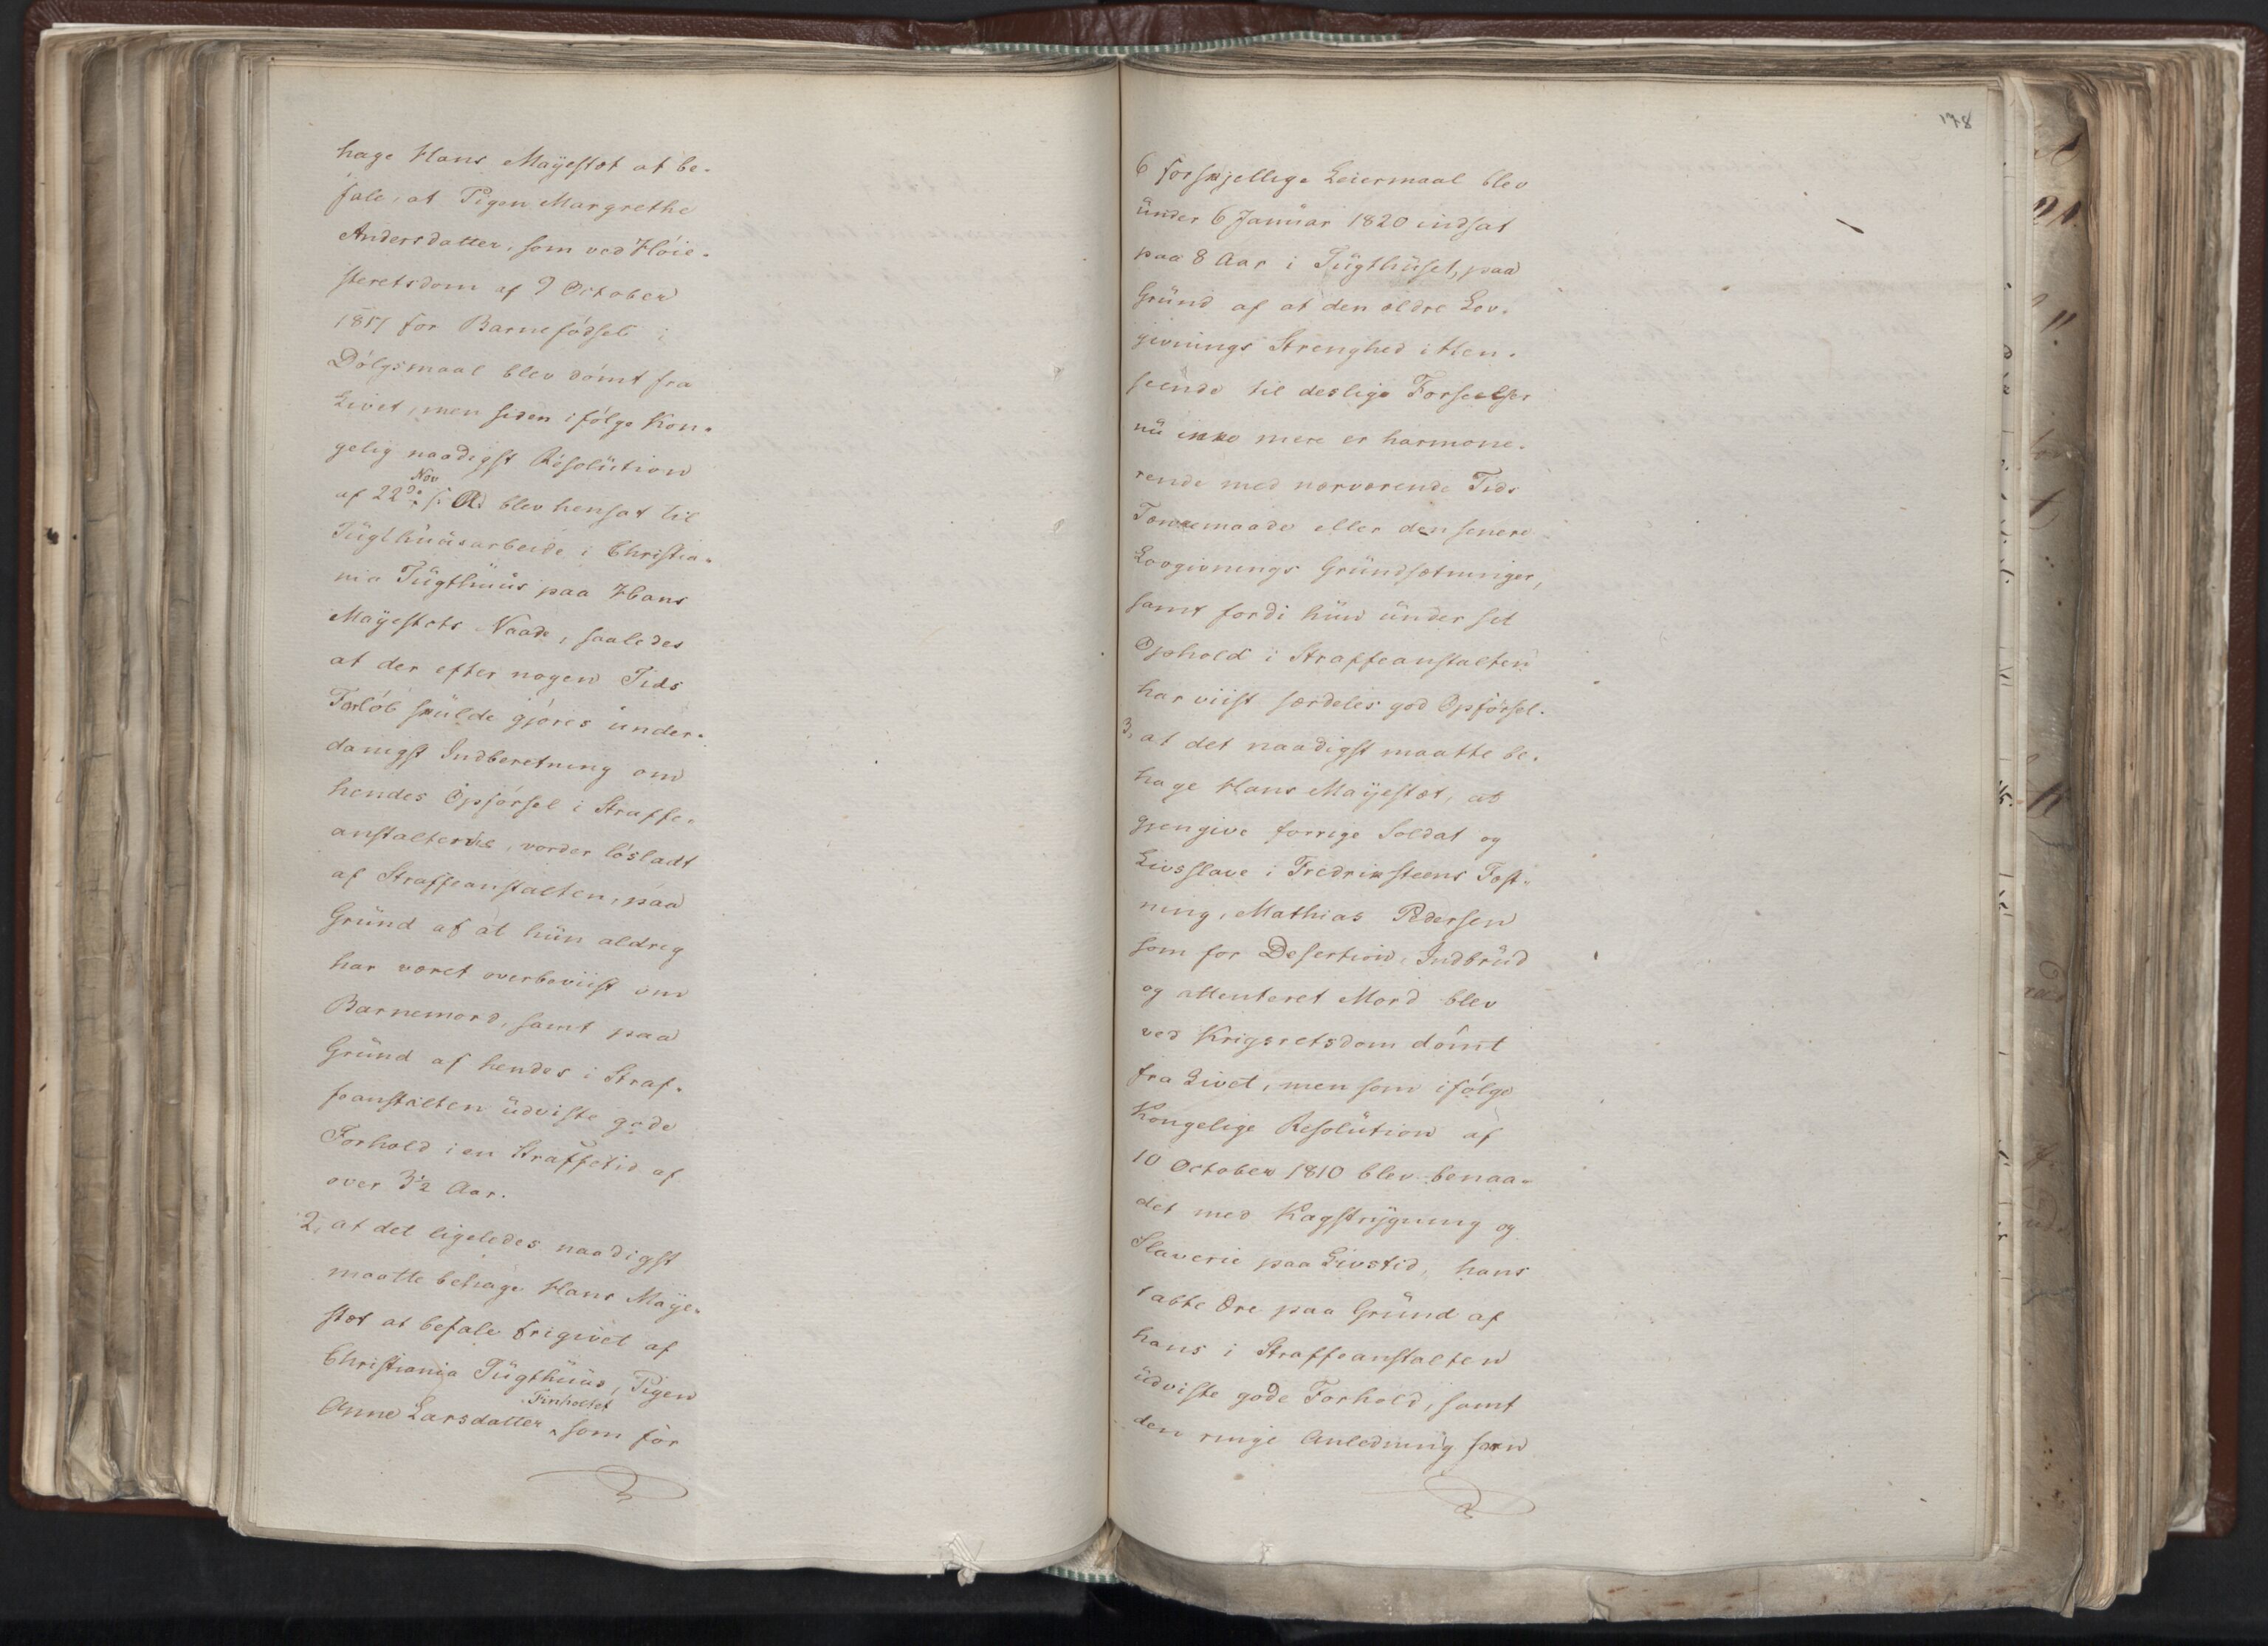 hage Hans Mayestæt at be-
fale, at Pigen Margrethe
Andersdatter, som ved Høie-
steretsdom af 9 October
1817 for Barnefødsel i
Dølgsmaal blev dømt fra
Livet, men siden ifølge Kon-
gelig naadigst Resolution
Nov
af 22de s: A: blev hensat til
Tügthuusarbeide i Christia-
nia Tügthuus paa Hans
Mayestæts Naade, saaledes
at der efter nogen Tids
Forløb skulde gjøres under-
danigst Indberetning om
hendes Opførsel i Straffe-
anstalterne, vorder løsladt
af Straffeanstalten, paa
Grund af at hun aldrig
har været overbeviist om
Barnemord, samt paa
Grund af hendes i Straf-
feanstalten udviste gode
Forhold i en Straffetid af
over 3½ Aar.
2, at det ligeledes naadigst
maatte behage Hans Maye-
stæt at befale frigivet af
Christiania Tügthuus, Pigen
Finholtet
Anne Larsdatter, som for
178
6 forskjellige Leiermaal blev
under 6 Januar 1820 indsat
paa 8 Aar i Tügthuset, paa
Grund af at den ældre Lov-
givnings Strenghed i Hen-
seende til deslige Forseelser
nu ikke mere er harmone-
rende med nærværende Tids
Tænkemaade eller den senere
Lovgivnings Grundsætninger,
samt fordi hun under sit
Ophold i Straffeanstalten
har viist særdeles god Opførsel.
3, at det naadigst maatte be-
hage Hans Mayestæt, at
gjengive forrige Soldat og
Livsslave i Fredriksteens Fæst-
ning, Mathias Pedersen
som for Desertion, Indbrud
og attenteret Mord blev
ved Krigsretsdom dømt
fra Livet, men som ifølge
Kongelige Resolution af
10 October 1810 blev benaa-
det med Kagstrygning og
Slaverie paa Livstid, hans
tabte Ære paa Grund af
hans i Straffeanstalten
udviste gode Forhold, samt
den ringe Anledning han